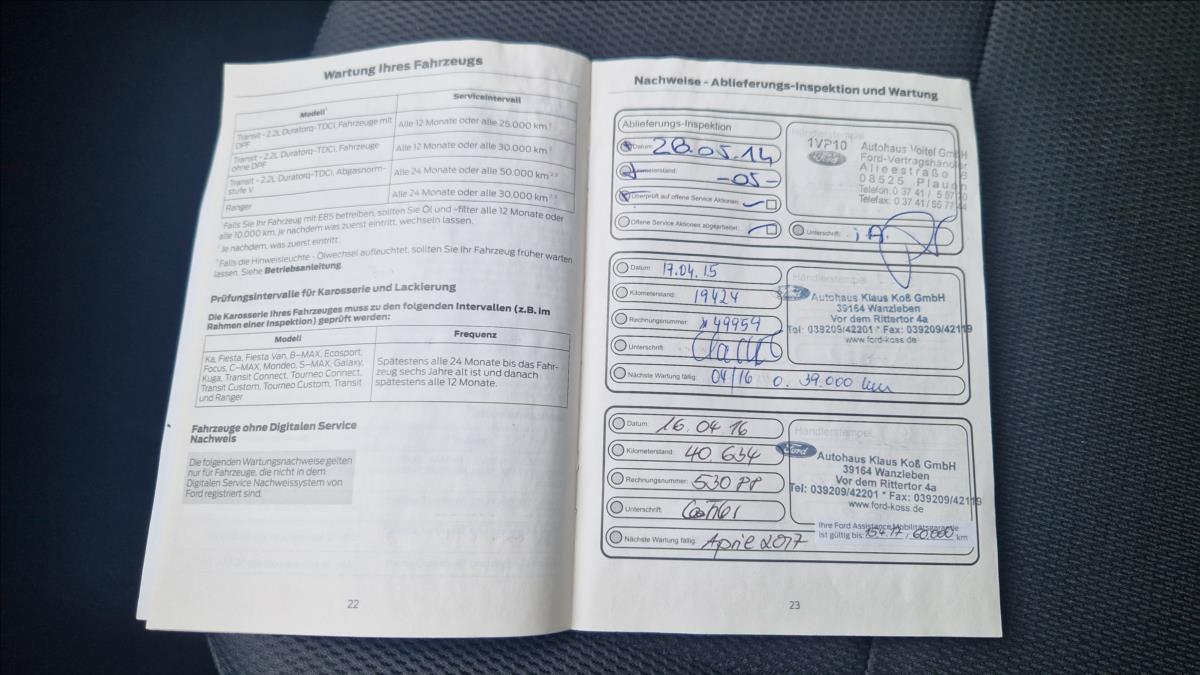 Wartung Ihres Fahrzeugs
Modell¹ Serviceintervall
Transit - 2.2L Duratorq-TDCi, Fahrzeuge mit
DPF
Alle 12 Monate oder alle 25.000 km
Transit - 2.2L Duratorq-TDCi, Fahrzeuge
ohne DPF
Alle 12 Monate oder alle 30.000 km
Transit - 2.2L Duratorq-TDCi, Abgasnorm-
stufe V
Alle 24 Monate oder alle 50.000 km
Ranger Alle 24 Monate oder alle 30.000 km
Falls Sie Ihr Fahrzeug mit E85 betreiben, sollten Sie Öl und -filter alle 12 Monate oder
alle 10.000 km, je nachdem was zuerst eintritt, wechseln lassen.
Je nachdem, was zuerst eintritt.
Falls die Hinweisleuchte - Ölwechsel aufleuchtet, sollten Sie Ihr Fahrzeug früher warten
lassen. Siehe Betriebsanleitung.
Prüfungsintervalle für Karosserie und Lackierung
Die Karosserie Ihres Fahrzeuges muss zu den folgenden Intervallen (z.B. im
Rahmen einer Inspektion) geprüft werden:
Modell Frequenz
Ka, Fiesta, Fiesta Van, B-MAX, Ecosport,
Focus, C-MAX, Mondeo, S-MAX, Galaxy,
Kuga, Transit Connect, Tourneo Connect,
Transit Custom, Tourneo Custom, Transit
und Ranger
Spätestens alle 24 Monate bis das Fahr-
zeug sechs Jahre alt ist und danach
spätestens alle 12 Monate.
Fahrzeuge ohne Digitalen Service
Nachweis
Die folgenden Wartungsnachweise gelten
nur für Fahrzeuge, die nicht in dem
Digitalen Service Nachweissystem von
Ford registriert sind.
22
Nachweise - Ablieferungs-Inspektion und Wartung
Ablieferungs-Inspektion
Datum: 28.05.14
Kilometerstand: -05-
Überprüft auf offene Service Aktionen:
Offene Service Aktionen abgearbeitet:
Händlerstempel
1VP10
Ford
Autohaus Voitel GmbH
Ford-Vertragshändler
Alleestraße
08525 Plauen
Telefon: 0 37 41 /
Telefax: 0 37 41 /
Unterschrift: i.A.
Datum: 17.04.15
Kilometerstand: 19424
Rechnungsnummer: 49954
Unterschrift:
Nächste Wartung fällig: 04/16 o. 39.000 km
Händlerstempel
Ford
Autohaus Klaus Koß GmbH
39164 Wanzleben
Vor dem Rittertor 4a
Tel: 039209/42201 * Fax: 039209/42119
www.ford-koss.de
Datum: 16.04.16
Kilometerstand: 40 634
Rechnungsnummer:
Unterschrift:
Nächste Wartung fällig: April 2017
Händlerstempel
Ford
Autohaus Klaus Koß GmbH
39164 Wanzleben
Vor dem Rittertor 4a
Tel: 039209/42201 * Fax: 039209/42119
www.ford-koss.de
Ihre Ford Assistance Mobilitätsgarantie
ist gültig bis: 15.4.17, 60.000 km
23